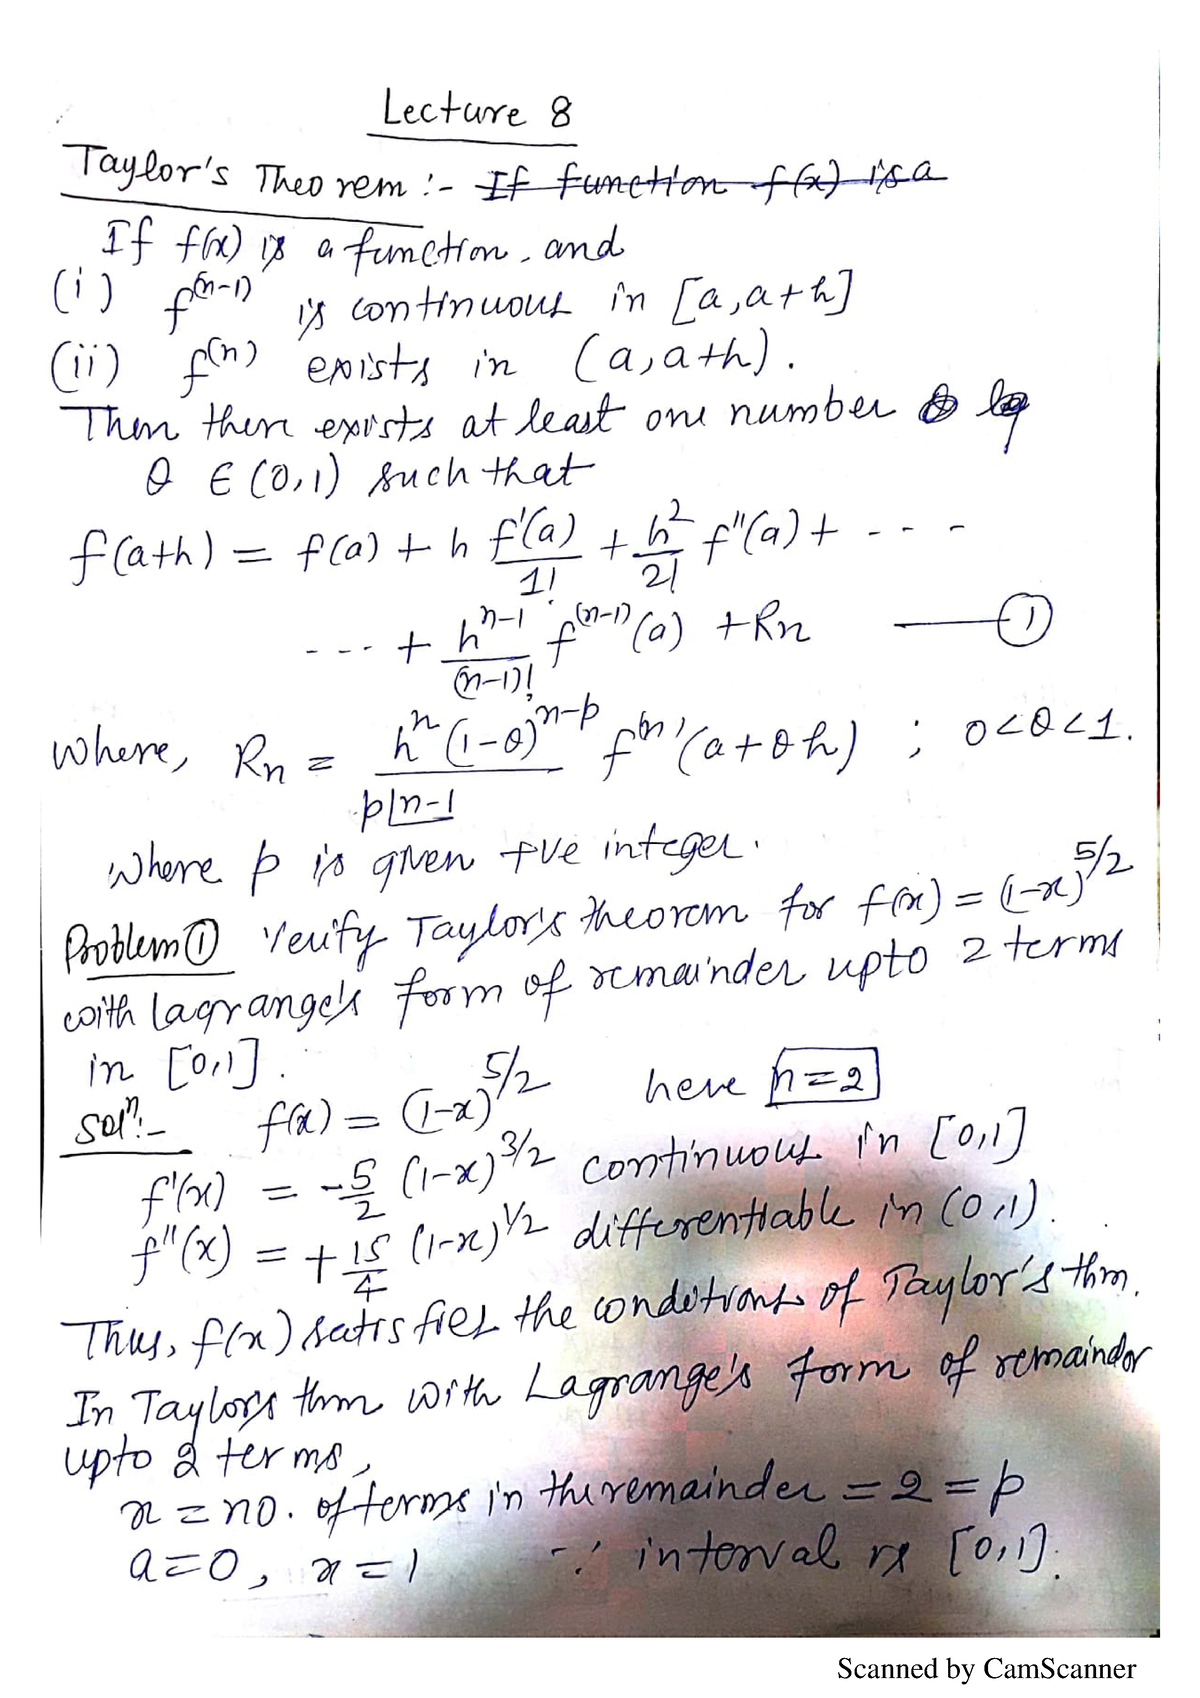 Lecture 8
Taylor's Theorem :- If function f(x) is a
If f(x) is a function, and
(i) f^(n-1) is continuous in [a, a+h]
(ii) f^(n) exists in (a, a+h).
Then there exists at least one number
θ ∈ (0,1) such that
f(a+h) = f(a) + h f'(a)/1! + h^2/2! f''(a) + - - -
- - - + h^(n-1)/(n-1)! f^(n-1)(a) + Rn —— (1)
Where, Rn = h^n (1-θ)^(n-p) / p⌊n-1 f^(n)'(a+θh) ; 0<θ<1.
Where p is given +ve integer.
Problem (1) Verify Taylor's theorem for f(x) = (1-x)^5/2
with Lagrange's form of remainder upto 2 terms
in [0,1].
Solⁿ:- f(x) = (1-x)^5/2 here n=2
f'(x) = -5/2 (1-x)^3/2 continuous in [0,1]
f''(x) = +15/4 (1-x)^1/2 differentiable in (0,1).
Thus, f(x) satisfies the conditions of Taylor's thm.
In Taylor's thm with Lagrange's form of remainder
upto 2 terms,
n = no. of terms in the remainder = 2 = p
a=0, x=1 ∵ interval is [0,1].
Scanned by CamScanner